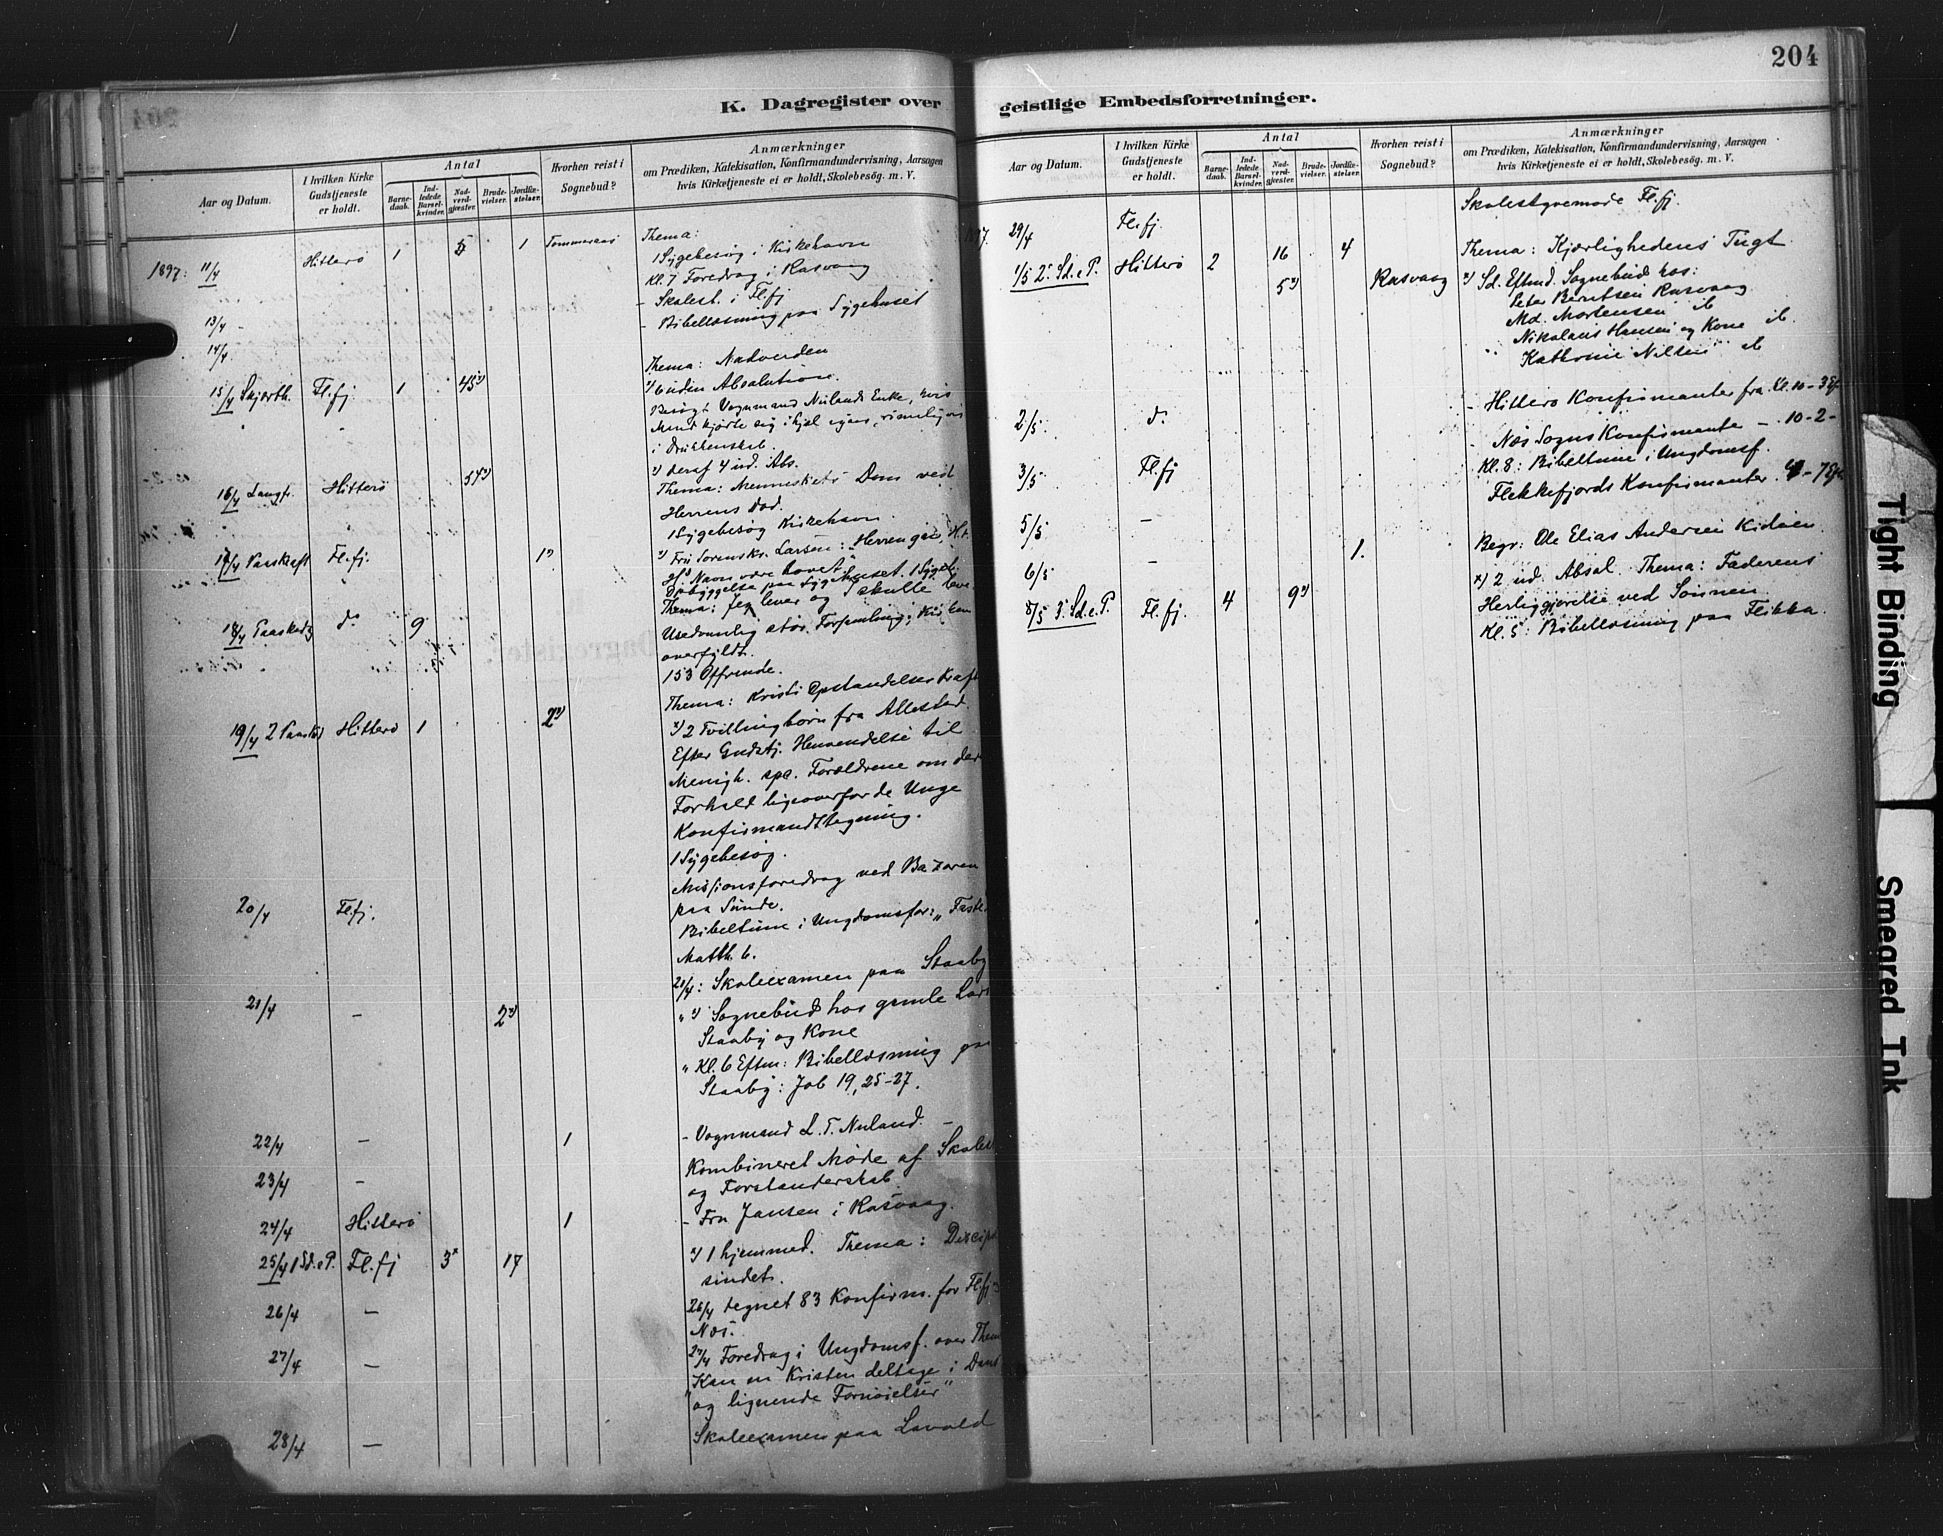 204
K. Dagregister over geistlige Embedsforretninger.
Aar og Datum.
I hvilken Kirke Gudstjeneste er holdt.
Antal
Barnedaab.
Indledede Barselkvinder.
Nadverdgjæster.
Brudevielser.
Jordfæstelser.
Hvorhen reist i Sognebud?
Anmærkninger
om Prædiken, Katekisation, Konfirmandundervisning, Aarsagen
hvis Kirketjeneste ei er holdt, Skolebesøg. m. V.
1897: 11/4 Hitterø 1 5 1 Thema:
1 Sygebesøg i Kirkehavn
Kl. 7 Foredrag i Rasvaag
13/4 - - Skolest. i Fl.fj
14/4 - Bibellæsning paa Sygehuset
15/4 Skjærth. Fl.fj. 1 45 x) Thema: Nadverden
x) 6 uden Absolution.
Besøgt Vognmand Nulands Enke, hvis
Mand kjørte sig ihjel igaar, rimeligvis
i Drukkenskab.
16/4 Langfr. Hitterø x) deraf 4 ud. Abs.
Thema: Menneskets Dom ved
Herrens Død.
1 Sygebesøg Kirkehavn.
17/4 Paaskeaft Fl.fj. 1 x) x) Fru Sorenskr. Larsen: Herren gav, H. t.
H.s Navn være lovet.
Opbyggelse paa Sygehuset. 1 Sygeb.
18/4 Paaskedg do 9 Thema: Jeg lever og I skulle leve
Usedvanlig stor Forsamling; Kirken
overfyldt.
153 Offrende.
19/4 2 Paaskd Hitterø 1 2 x) Thema: Kristi Opstandelses Kraft
x) 2 Tvillingbørn fra Allestad.
Efter Gudstj. Henvendelse til
Menigh. spec. Forældrene om deres
Forhold ligeoverfor de Unge
Konfirmandtegning.
1 Sygebesøg.
20/4 Fl.fj. Missionsforedrag ved Bazaren
paa Sunde.
Bibeltime i Ungdomsfor: „Faste
Matth. 6.
21/4 - 2 x) 21/4: Skoleexamen paa Staaby
„ x) Sognebud hos gamle Lars
Staaby og Kone
„ Kl. 6 Eftm: Bibellæsning paa
Staaby: Job 19, 25-27.
22/4 - 1 - Vognmand L. T. Nuland. -
23/4 - Kombineret Møde af Skolest
og Forstanderskab.
24/4 Hitterø 1 - Fru Jansen i Rasvaag.
25/4 1 Sd. e P. Fl.fj 3 x 17 x) 1 hjemmed. Thema: Discipel
sindet.
26/4 - 26/4 tegnet 83 Konfirm. for Fl.fj og
Næs.
27/4 - 27/4 Foredrag i Ungdomsf. over Thema
„Kan en Kristen deltage i Dans
og lignende Fornøielser"
28/4 - Skoleexamen paa Lavold
Aar og Datum.
I hvilken Kirke Gudstjeneste er holdt.
Antal
Barnedaab.
Indledede Barselkvinder.
Nadverdgjæster.
Brudevielser.
Jordfæstelser.
Hvorhen reist i Sognebud?
Anmærkninger
om Prædiken, Katekisation, Konfirmandundervisning, Aarsagen
hvis Kirketjeneste ei er holdt, Skolebesøg. m. V.
1897. 29/4 Fl.fj. Skolestyremøde Fl.fj.
1/5 2. Sd. e P. Hitterø 2 16 4 Thema: Kjærlighedens Tugt
5 x) Rasvaag x) Sd. Eftmd. Sognebud hos:
Peter Berntsen Rasvaag
Md. Mortensen ib
Nikolaus Hansen og Kone ib.
„ Kathrine Nilsen ib
2/5 do - Hitterø Konfirmanter fra Kl. 10 - 3 Ef
3/5 Fl.fj - Næs Sogns Konfirmante - 10 - 2 -
Kl. 8: Bibeltime i Ungdomsf.
5/5 - Flekkefjords Konfirmanter - 7 Ef.
6/5 - 1. Begr: Ole Elias Andersen
8/5 3. Sd. e. P. Fl.fj. 4 9 x) x) 2 ud. Absol. Thema: Faderens
Herliggjørelse ved Sønnen
Kl. 5: Bibellæsning paa Flikka.
Tight Binding
Smeared Ink